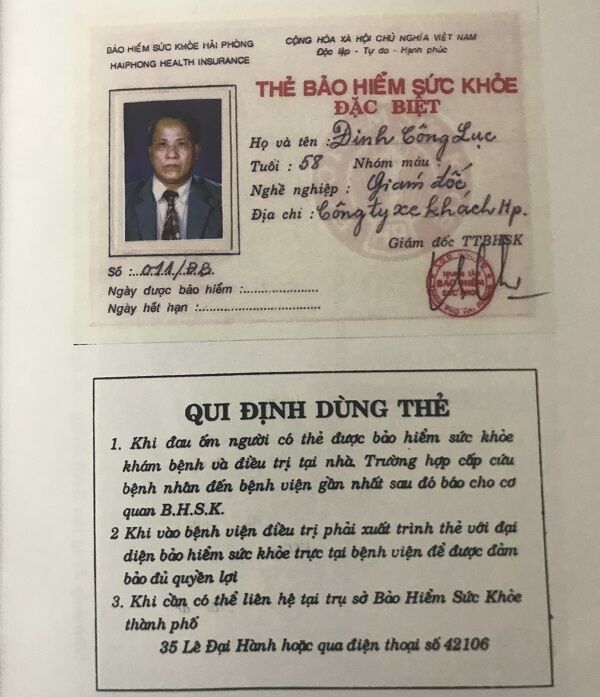 BẢO HIỂM SỨC KHỎE HẢI PHÒNG
HAIPHONG HEALTH INSURANCE
CỘNG HÒA XÃ HỘI CHỦ NGHĨA VIỆT NAM
Độc lập - Tự do - Hạnh phúc
THẺ BẢO HIỂM SỨC KHỎE
ĐẶC BIỆT
Họ và tên : Đinh Công Lục
Tuổi : 58 Nhóm máu :
Nghề nghiệp : Giám đốc
Địa chỉ : Công ty xe khách Hp.
Giám đốc TTBHSK
Số :..011/ĐB.
Ngày được bảo hiểm :
Ngày hết hạn :
TRUNG TÂM
BẢO HIỂM
SỨC KHỎE
QUI ĐỊNH DÙNG THẺ
1. Khi đau ốm người có thẻ được bảo hiểm sức khỏe
khám bệnh và điều trị tại nhà. Trường hợp cấp cứu
bệnh nhân đến bệnh viện gần nhất sau đó báo cho cơ
quan B.H.S.K.
2 Khi vào bệnh viện điều trị phải xuất trình thẻ với đại
diện bảo hiểm sức khỏe trực tại bệnh viện để được đảm
bảo đủ quyền lợi
3. Khi cần có thể liên hệ tại trụ sở Bảo Hiểm Sức Khỏe
thành phố
35 Lê Đại Hành hoặc qua điện thoại số 42106